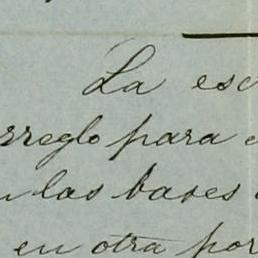 La esc
rreglo para
las bases
en otra por